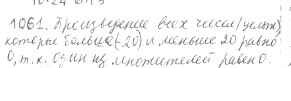 1061. Произведение всех чисел (целых),
которые больше (-20) и меньше 20 равно
0, т.к. один из множителей равен 0.